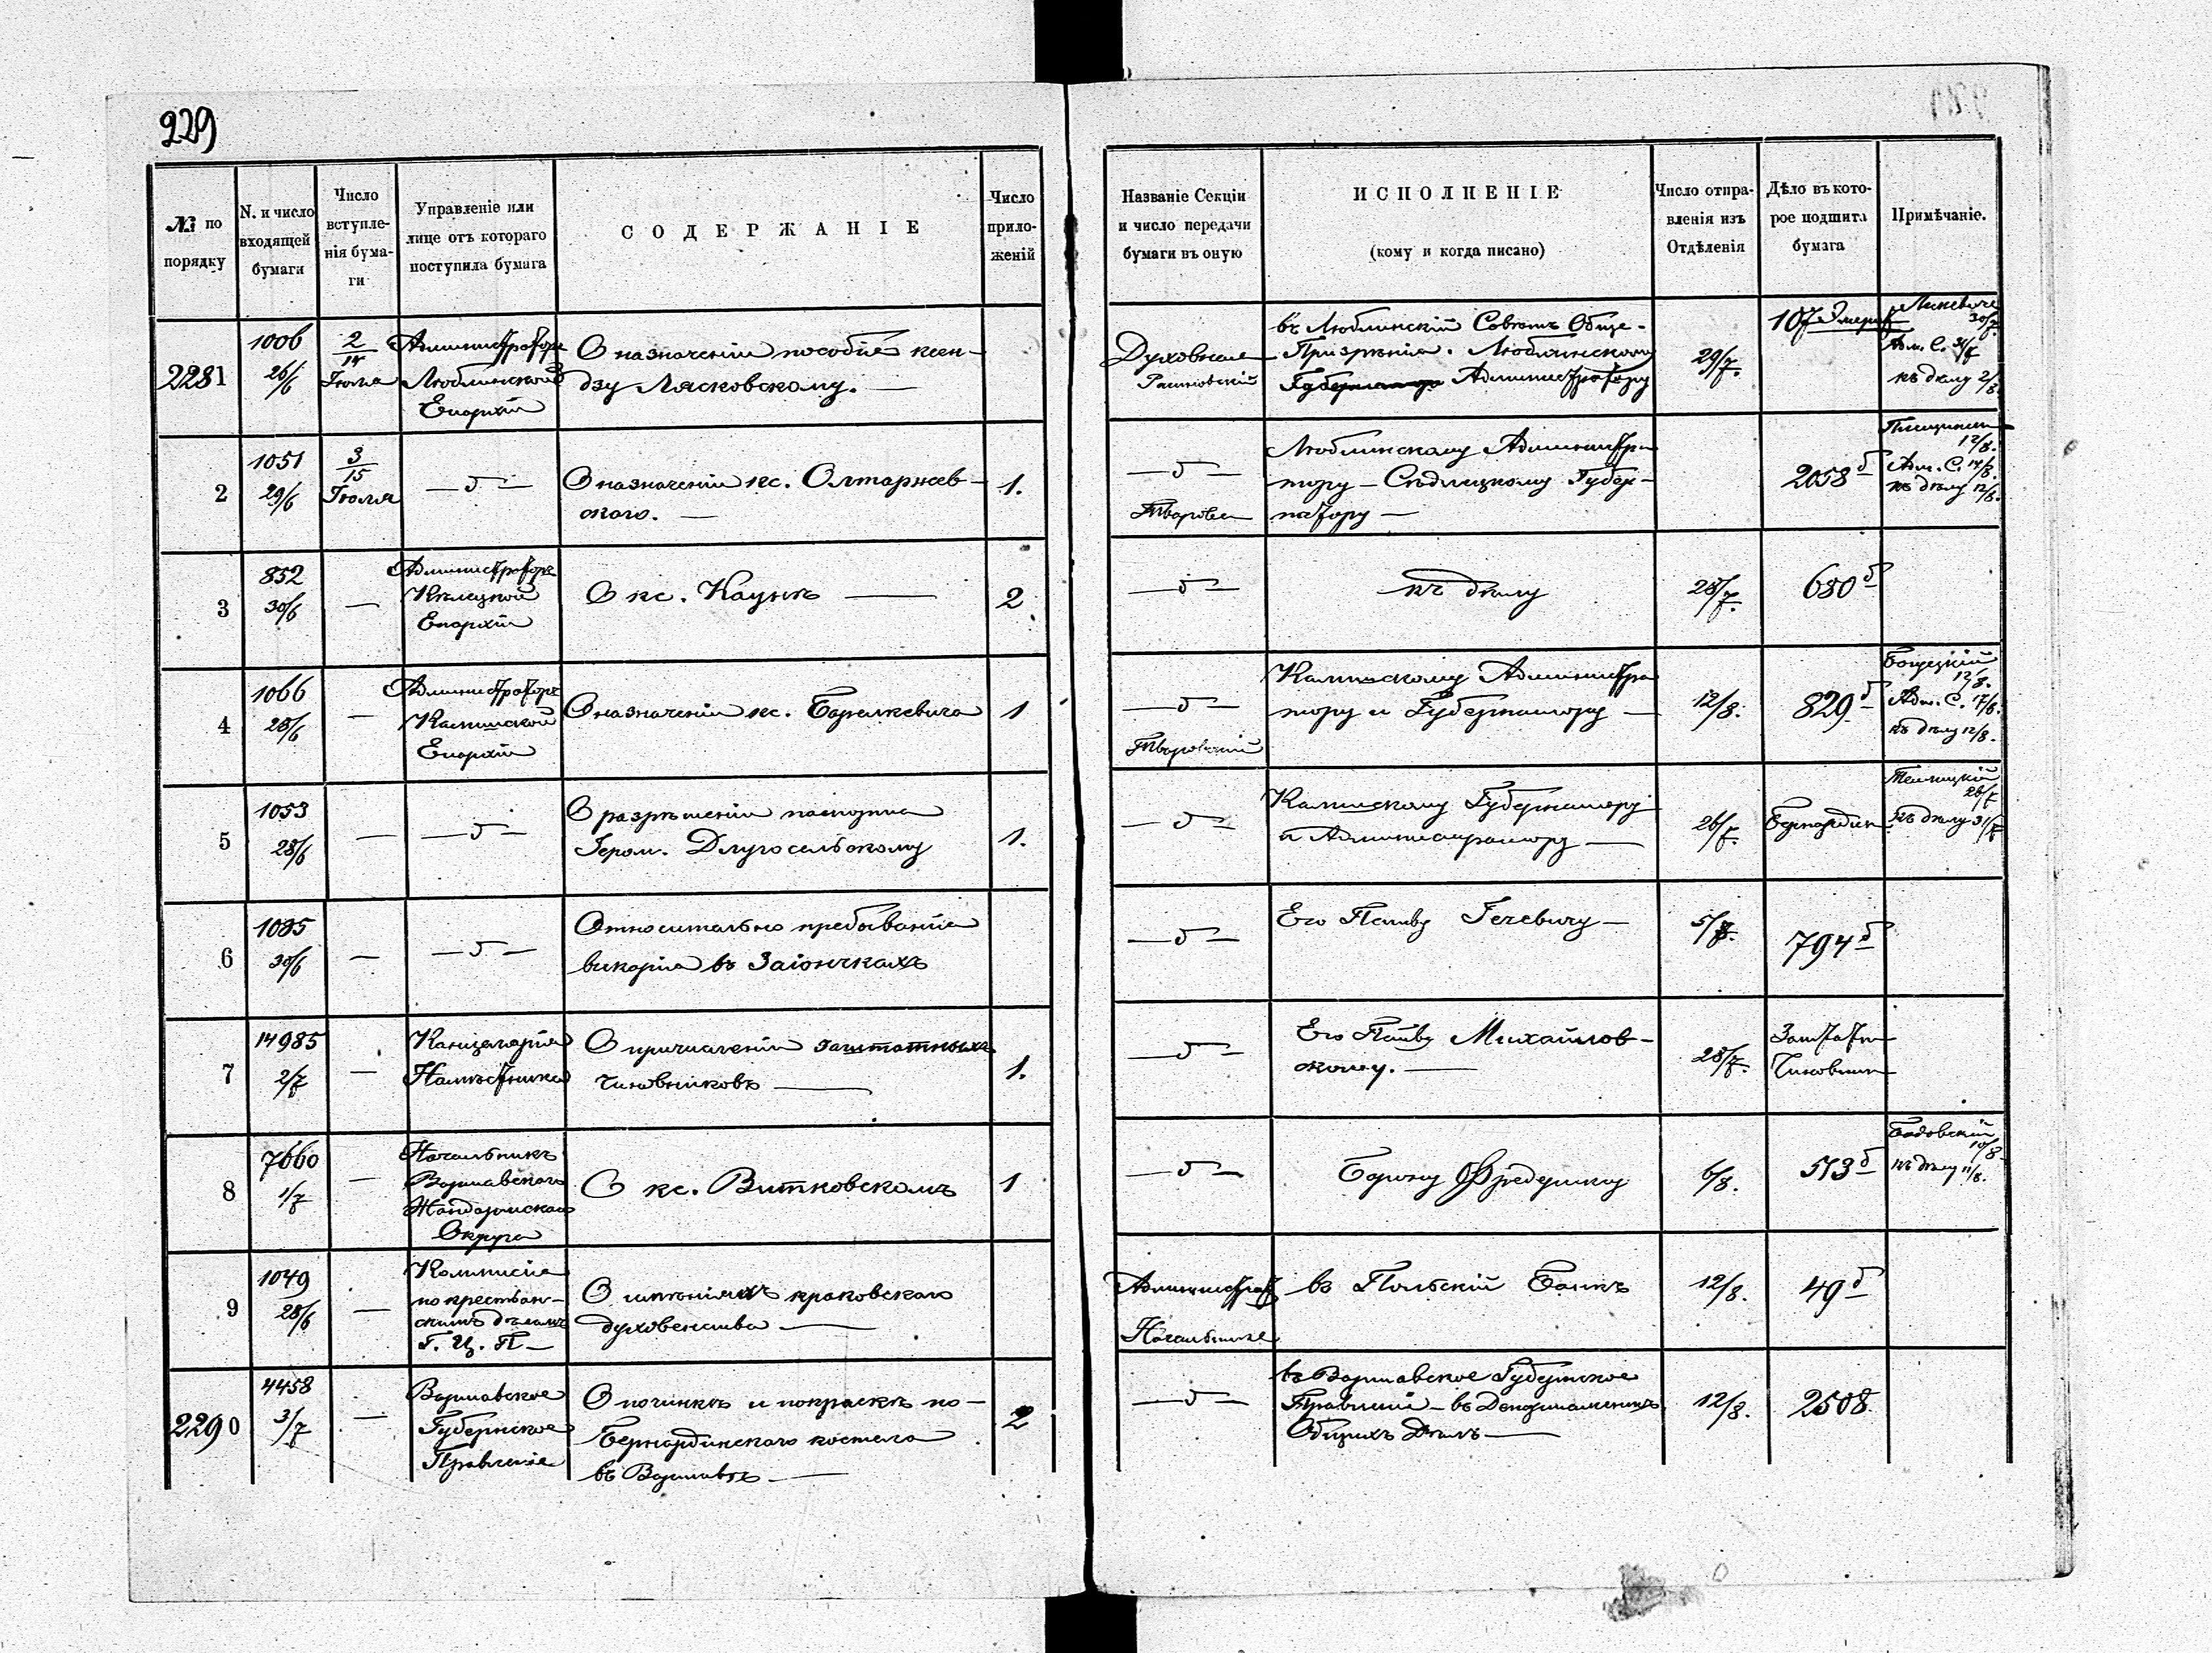 229
№ по порядку
N. и число входящей бумаги
Число вступленія бумаги
Управленіе или лице отъ котораго поступила бумага
СОДЕРЖАНІЕ
Число приложеній
Названіе Секціи и число передачи бумаги въ оную
ИСПОЛНЕНІЕ
(кому и когда писано)
Число отправленія изъ Отдѣленія
Дѣло въ которое подшита бумага
Примѣчаніе.
2281
1006
26/6
2/14 Іюля
Администраторъ
Люблинской
Епархіи
О назначеніи пособія ксен-
дзу Лясковскому. —
Духовная
въ Люблинскій Совѣтъ Обще-
Призрѣнія. Люблинскому
Губернатору Администратору
29/7.
107
30/7
Адм. С. 31/7
къ дѣлу 2/8
2
1051
29/6
3/15 Іюля
— б —
О назначеніи кс. Олтаржев-
скаго. —
1.
— б —
Люблинскому Администра-
тору — Сѣдлецкому Губер-
натору —
2058 б
12/8.
Адм. С. 14/8.
къ дѣлу 12/8.
3
852
30/6
—
Администраторъ
Кѣлецкой
Епархіи
О кс. Каунѣ —
2
— б —
къ дѣлу
28/7.
680 б
4
1066
28/6
—
Администраторъ
Калишской
Епархіи
О назначеніи кс. Боралкевича
1
— б —
Калишскому Администра-
тору и Губернатору —
12/8.
829 б
12/8.
Адм. С. 17/8.
къ дѣлу 12/8.
5
1053
28/6
—
— б —
О разрѣшеніи паспорта
Іером. Длугосельскому
1.
— б —
Калишскому Губернатору
и Администратору —
26/7.
Бернардин
26/7
къ дѣлу 31/7
6
1085
30/6
—
— б —
Относительно пребыванія
викарія въ Заіончкахъ
— б —
Его Гечевичу —
5/8.
794 б
7
14985
2/7
—
Канцелярія
Намѣстника
О причисленіи заштатныхъ
чиновниковъ —
1.
— б —
Его Михайлов-
скому. —
28/7.
Заштатн
Чиновник
8
7660
1/7
—
Начальникъ
Варшавскаго
Жандармскаго
Округа
О кс. Витковскомъ
1
— б —
Барону Фредериксу
6/8.
513 б
10/8
къ дѣлу 11/8.
9
1049
28/6
—
Коммисія
по крестьян-
скимъ дѣламъ
Г. Ц. П —
О имѣніяхъ краковскаго
духовенства —
Администрат
въ Польскій Банкъ
12/8.
49 б
2290
4458
3/7
—
Варшавское
Губернское
Правленіе
О починкѣ и покраскѣ по-
Бернардинскаго костела
въ Варшавѣ —
2
— б —
въ Варшавское Губернское
Правленіе — въ Департаментъ
Общихъ Дѣлъ —
12/8.
2508